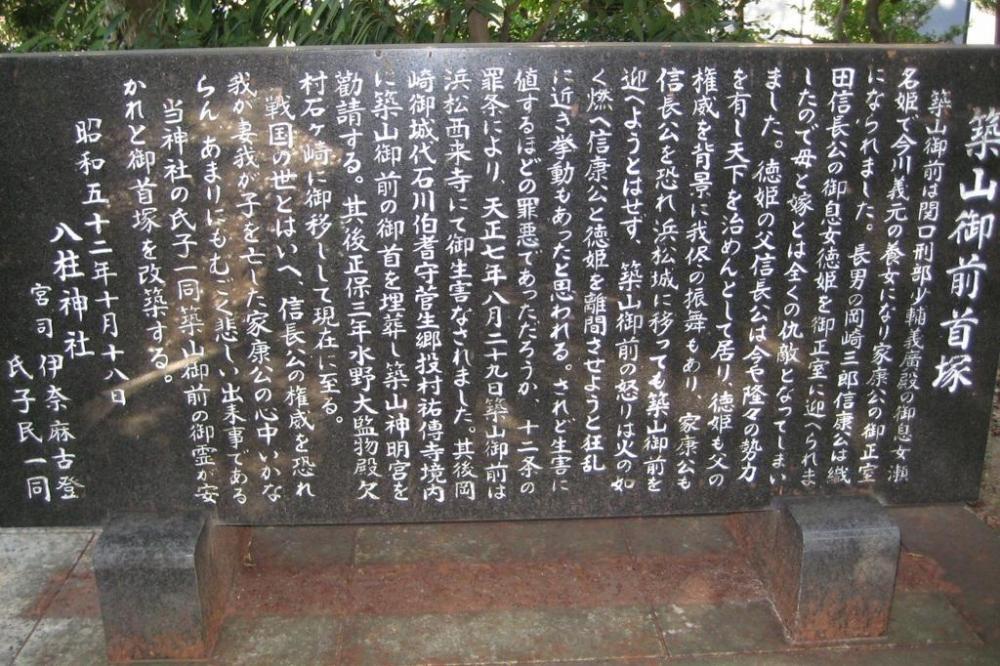 築山御前首塚
築山御前は関口刑部少輔義廣殿の御息女瀬
名姫で今川義元の養女になり家康公の御正室
になられました。長男の岡崎三郎信康公は織
田信長公の御息女徳姫を御正室に迎へられま
したので母と嫁とは全くの仇敵となってしまい
ました。徳姫の父信長公は今や隆々の勢力
を有し天下を治めんとして居り、徳姫も父の
権威を背景に我侭の振舞もあり、家康公も
信長公を恐れ浜松城に移っても築山御前を
迎へようとはせず、築山御前の怒りは火の如
く燃へ信康公と徳姫を離間させようと狂乱
に近き挙動もあったと思われる。されど生害に
値するほどの罪悪であっただろうか、十二条の
罪条により、天正七年八月二十九日築山御前は
浜松西来寺にて御生害なされました。其後岡
崎御城代石川伯耆守菅生郷投村祐傳寺境内
に築山御前の御首を埋葬し築山神明宮を
勸請する。其後正保三年水野大監物殿欠
村石ヶ崎に御移しして現在に至る。
戦国の世とはいへ、信長公の権威を恐れ
我が妻我が子を亡した家康公の心中いかな
らん あまりにもむごく悲しい出来事である
当神社の氏子一同築山御前の御霊が安
かれと御首塚を改築する。
昭和五十二年十月十八日
八柱神社
宮司 伊奈麻古登
氏子民一同